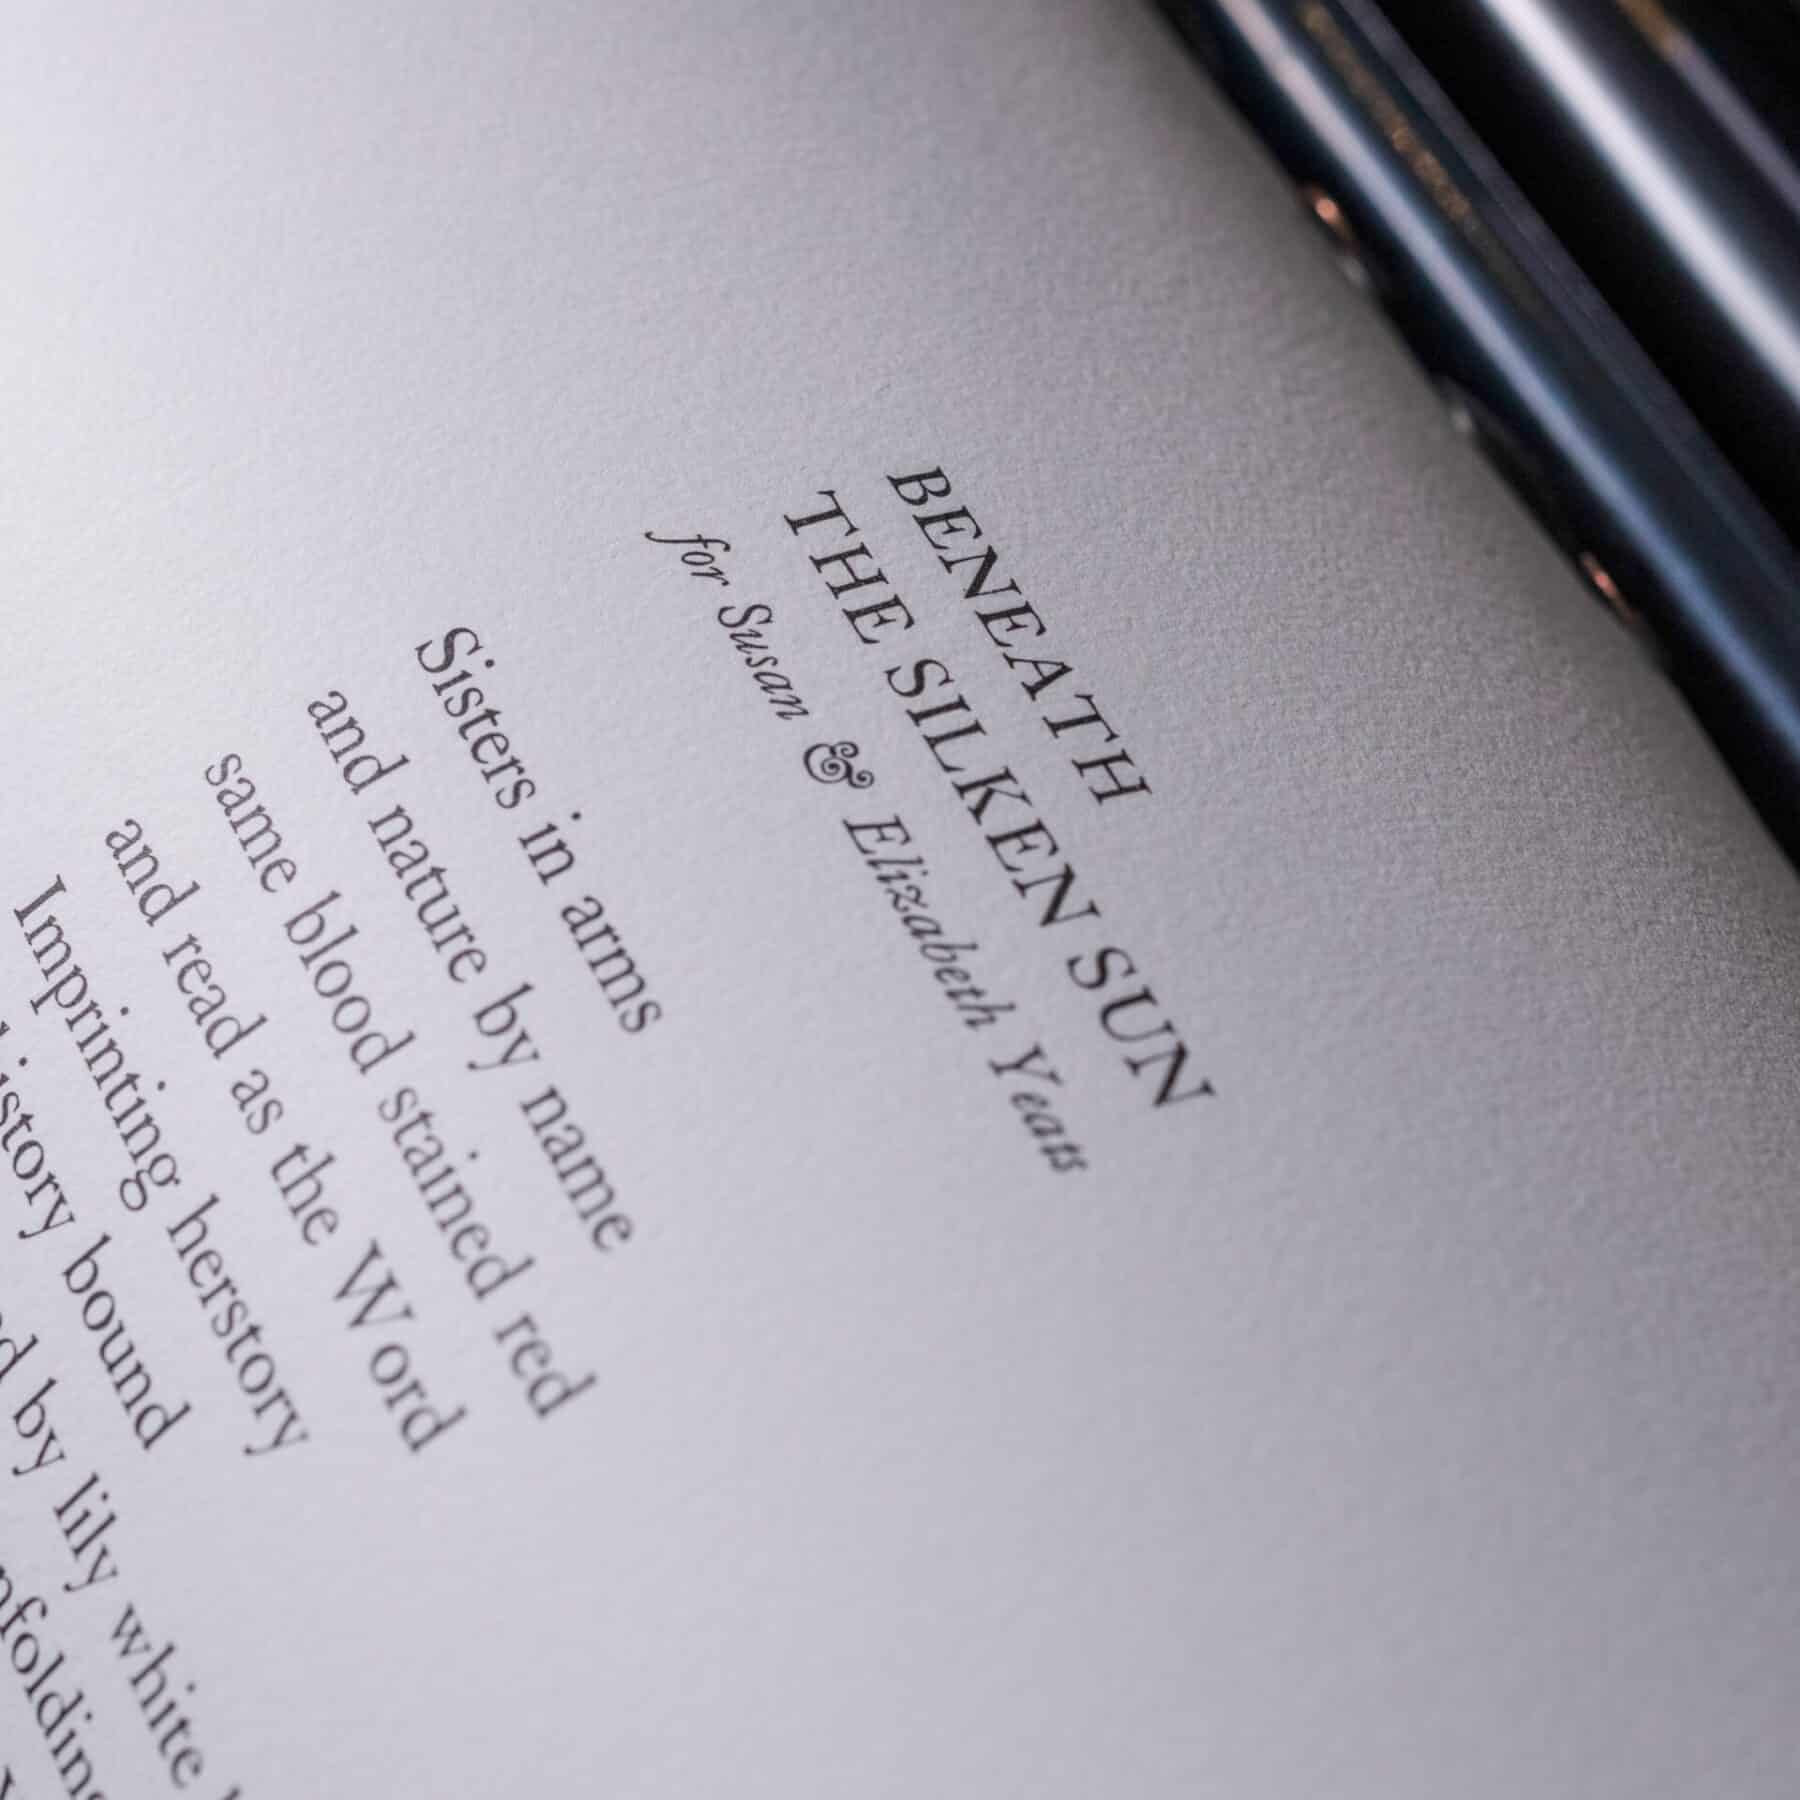 BENEATH
THE SILKEN SUN
for Susan & Elizabeth Yeats
Sisters in arms
and nature by name
same blood stained red
and read as the Word
Imprinting herstory
bound
by lily white